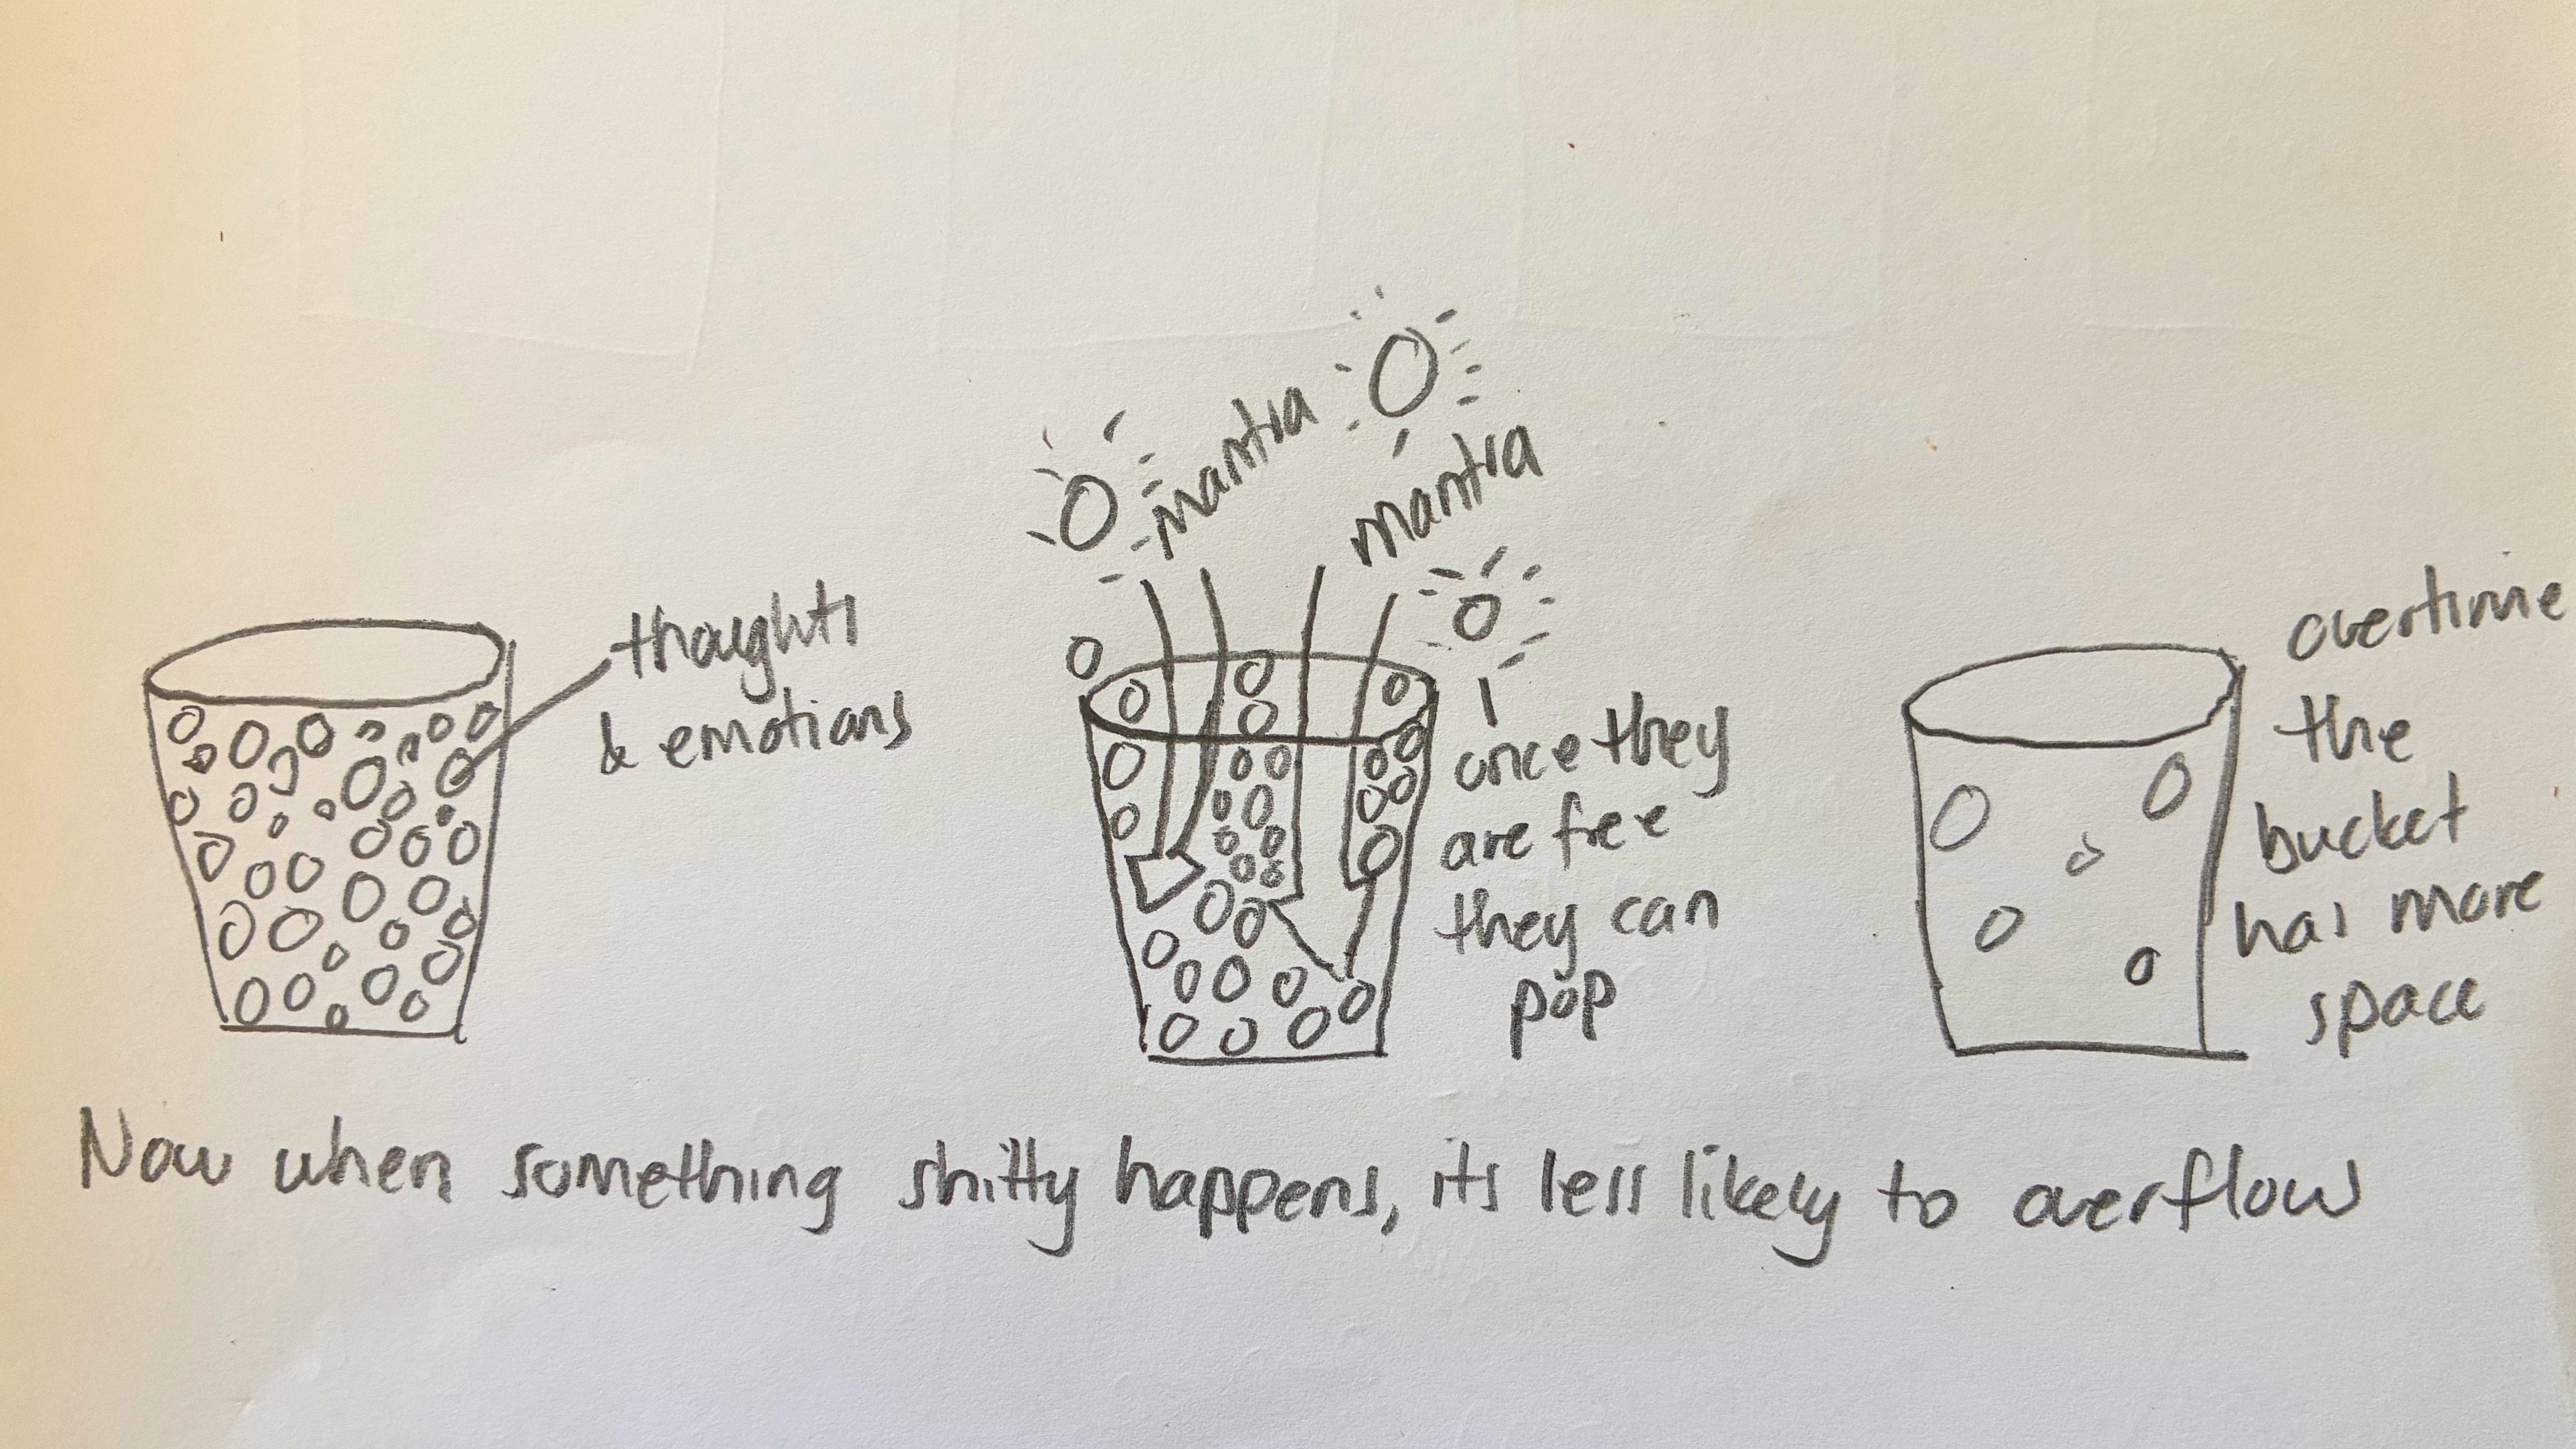 thoughts
& emotions
mantra
mantra
once they
are free
they can
pop
overtime
the
bucket
has more
space
Now when something shitty happens, its less likely to overflow